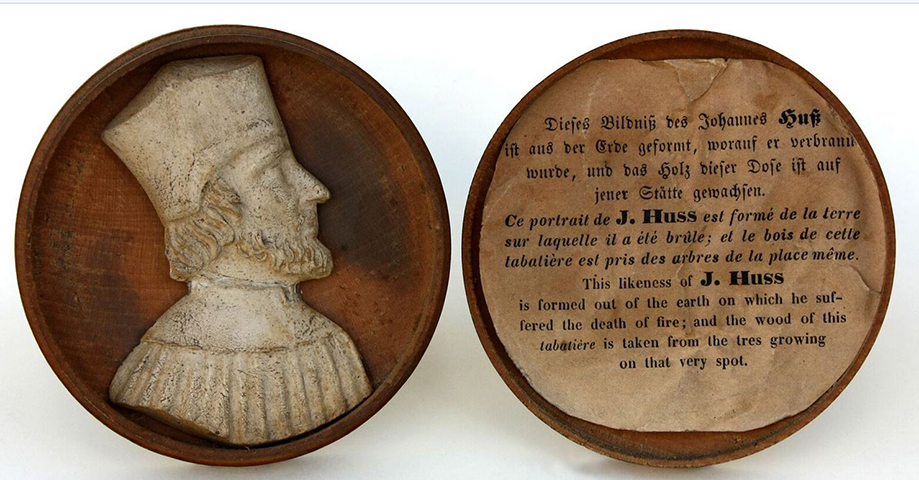 Dieses Bildniß des Johannes Huß
ist aus der Erde geformt, worauf er verbrann
wurde, und das Holz dieser Dose ist auf
jener Stätte gewachsen.
Ce portrait de J. Huss est formé de la terre
sur laquelle il a été brûle; et le bois de cette
tabatière est pris des arbres de la place même.
This likeness of J. Huss
is formed out of the earth on which he suf-
fered the death of fire; and the wood of this
tabatière is taken from the tres growing
on that very spot.